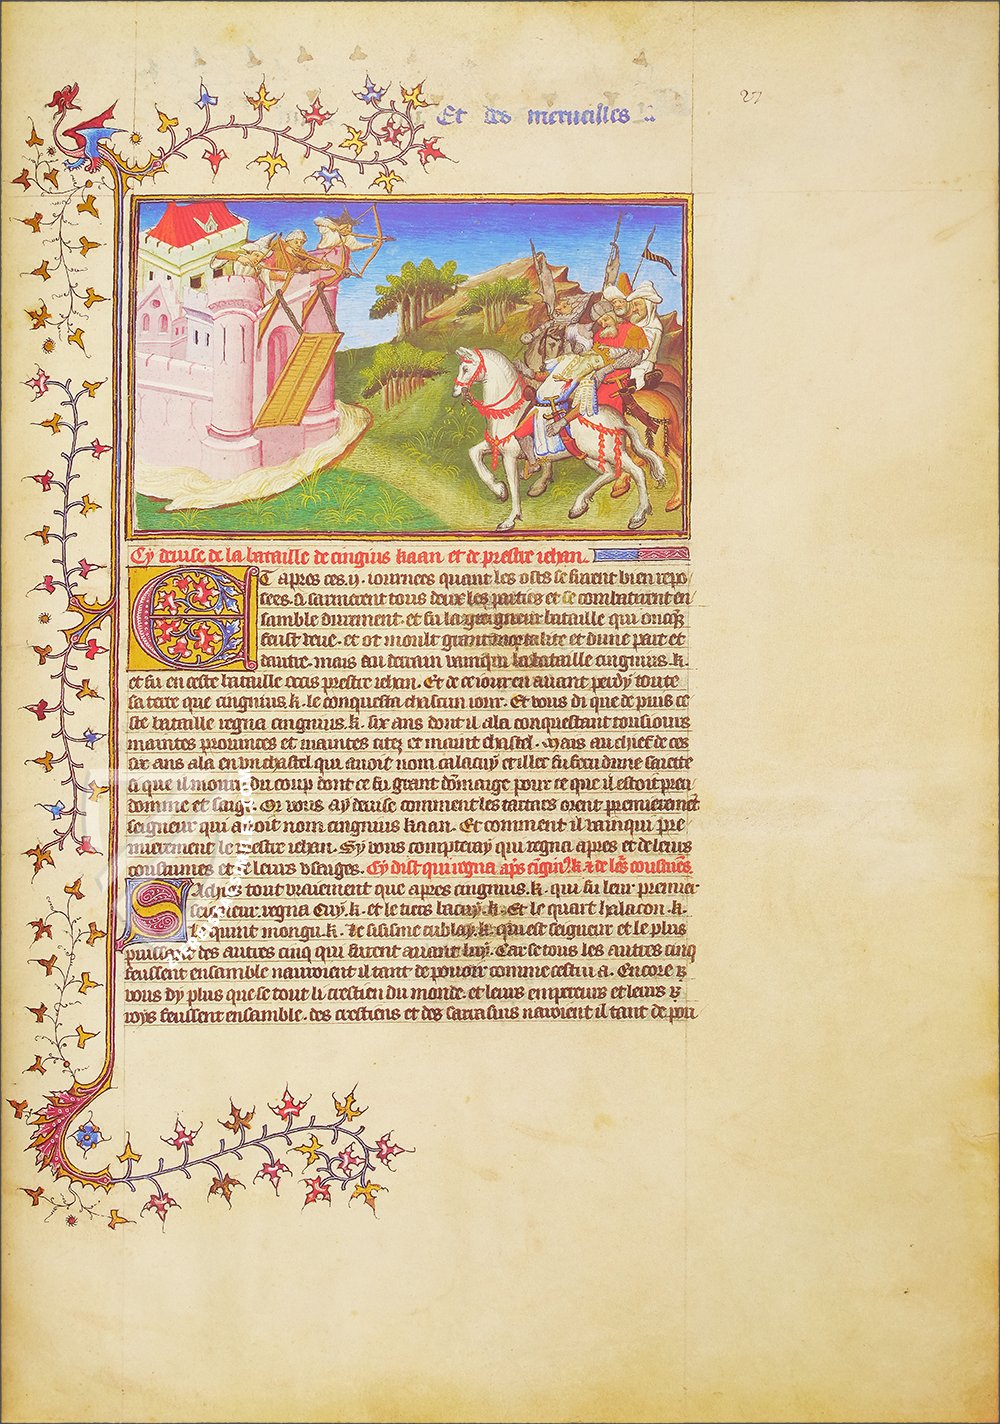 27
Et des merueilles
Cy deuise de la bataille de cingius kaan et de prestre iehan.
Et apres ces .ij. iournees quant les osts se furent bien repo
sees. si sarmerent tous deux les parties et se combatirent en
samble durement. et fu la greigneur bataille qui oncqs
feust veue. et ot moult grant mortalite et dune part et
dautre. mais au derrain vainqui la bataille cingius. k.
et fu en ceste bataille occis prestre iehan. Et de ce iour en auant perdy toute
sa terre que cinguis .k. le conquesta chascun iour. Et vous di que de puis ce
ste bataille regna cinguis .k. six ans dont il ala conquestant tousiours
maintes prouinces et maintes citez et maint chastel. Mais au chief de ces
six ans ala en vn chastel qui auoit nom calacuy et illec fu feru dune saiecte
si que il mourut du coup dont ce fu grant dommaige pour ce que il estoit preu
domme et saige. Or vous ay deuise comment les tartars orent premieremet
seigneur qui auoit nom cingnius kaan. Et comment il vainqui pre
mierement le prestre iehan. Sy vous compteray qui regna apres et de leurs
coustumes et de leurs vsaiges. Cy dist qui regna aps cigui9 .k. & de les coustumes
Sachiez tout vraiement que apres cingnius .k. qui fu leur premier
seigneur. regna Cuy .k. et le tiers bacuy .k. Et le quart halacon .k.
Le quint mongu .k. Le sisisme cublay .k. qui est seigneur et le plus
puissans des autres cinq qui furent auant luy. Car se tous les autres cinq
feussent ensamble nauroient il tant de pouoir comme cestui a. Encore
vous dy plus que se tout li crestien du monde. et leurs empereurs et leurs
roys feussent ensamble. des crestiens et des sarrasins nauroient il tant de pou